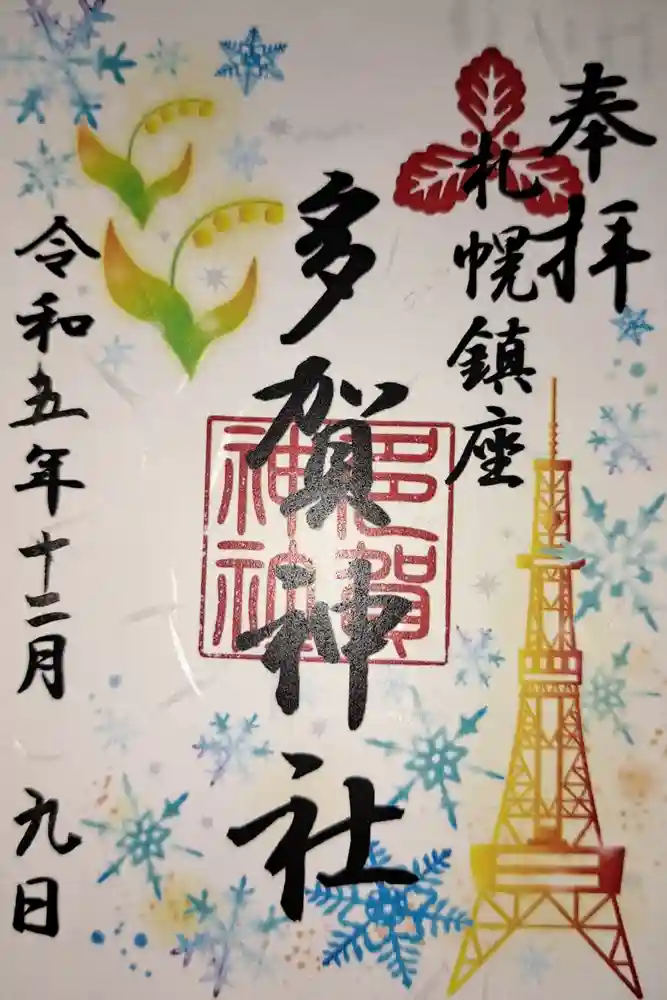 奉拝
札幌鎮座
多賀神社
多賀
神社
令和五年十二月 九日